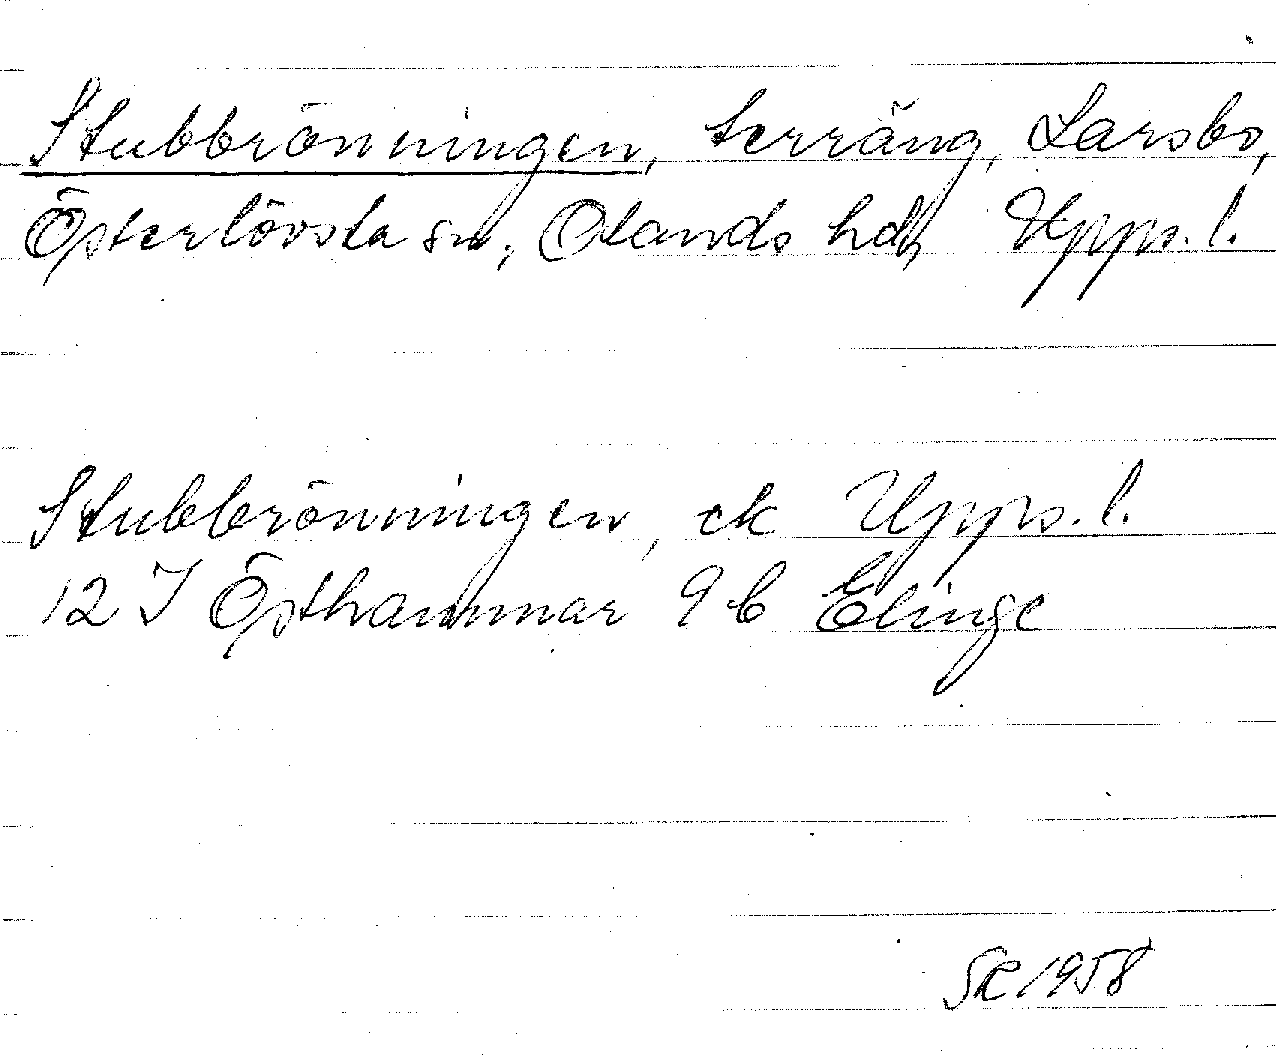 Stubbrönningen, terräng, Larsbo,
Österlövsta sn, Olands hd, Upps. l.
Stubbrönningen, ek Upps. l.
12 I Östhammar 9 b Elinge
SR 1958